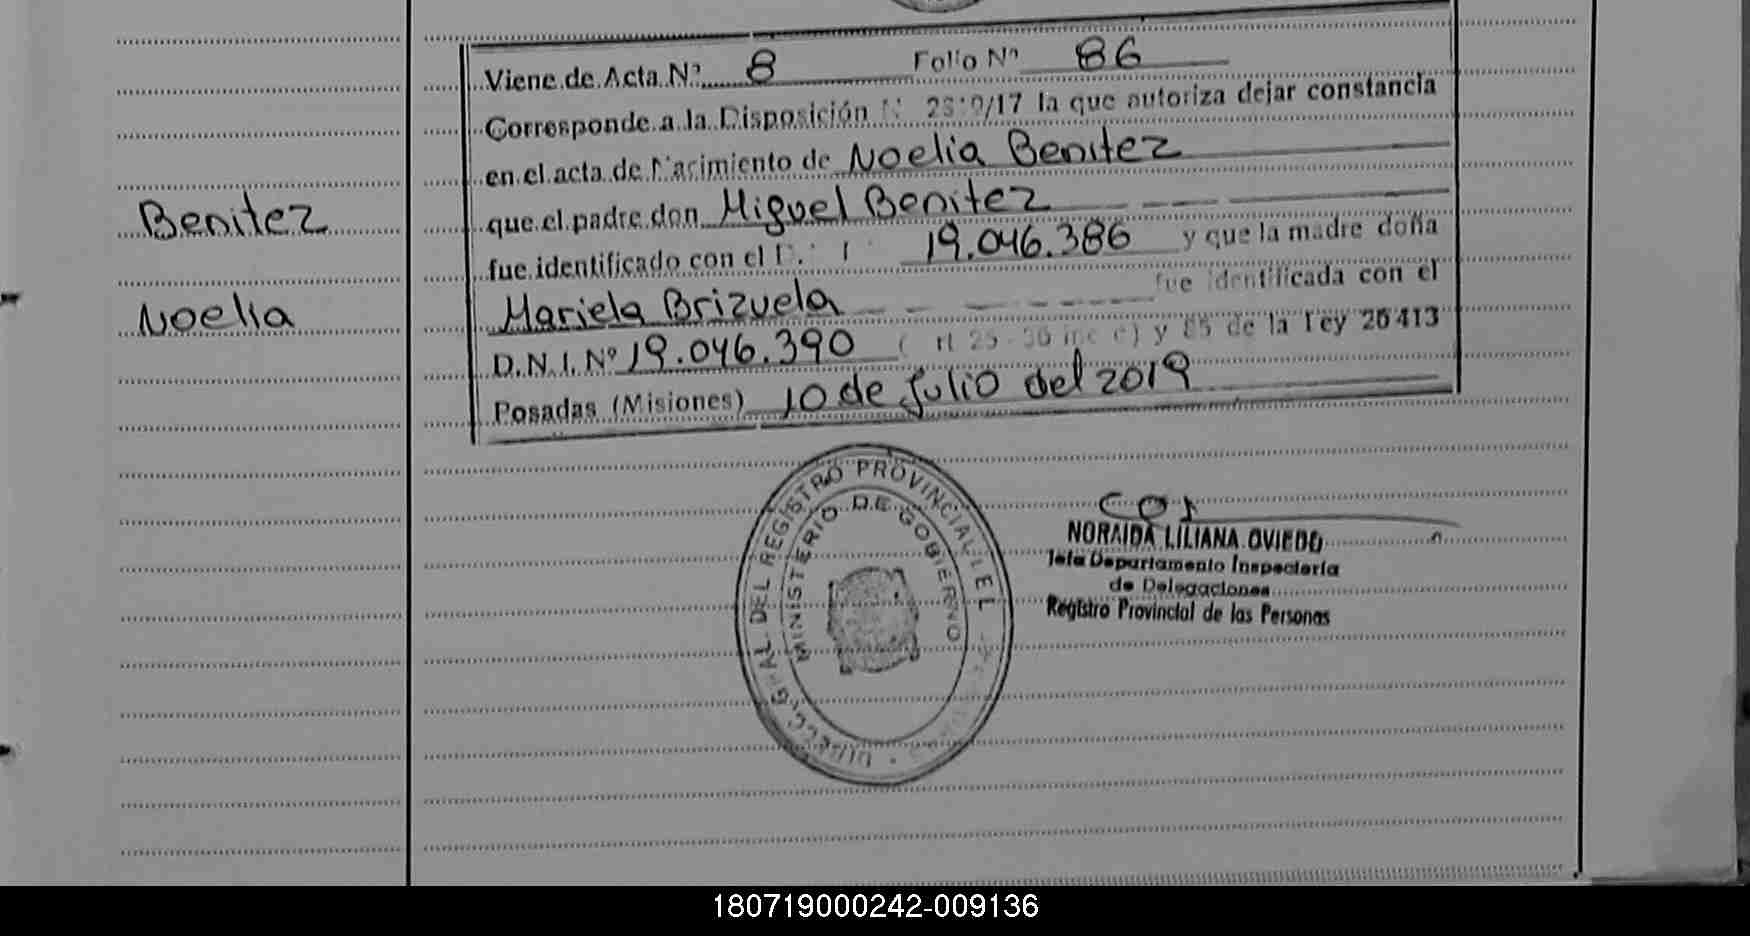 Viene de Acta Nº 8 Folio Nº 86
Corresponde a la Disposición N 2319/17 la que autoriza dejar constancia
en el acta de Nacimiento de Noelia Benitez
que el padre don Miguel Benitez
fue identificado con el D. I 19.046.386 y que la madre doña
Mariela Brizuela fue identificada con el
D.N.I. Nº 19.046.390 ( rt 25-36 inc c) y 85 de la Ley 26413
Posadas (Misiones) 10 de Julio del 2019
Benitez
Noelia
DIRECC. GRAL DEL REGISTRO PROVINCIAL DE L
MINISTERIO DE GOBIERNO
NORAIDA LILIANA OVIEDO
Jefa Departamento Inspectoria
de Delegaciones
Registro Provincial de las Personas
180719000242-009136